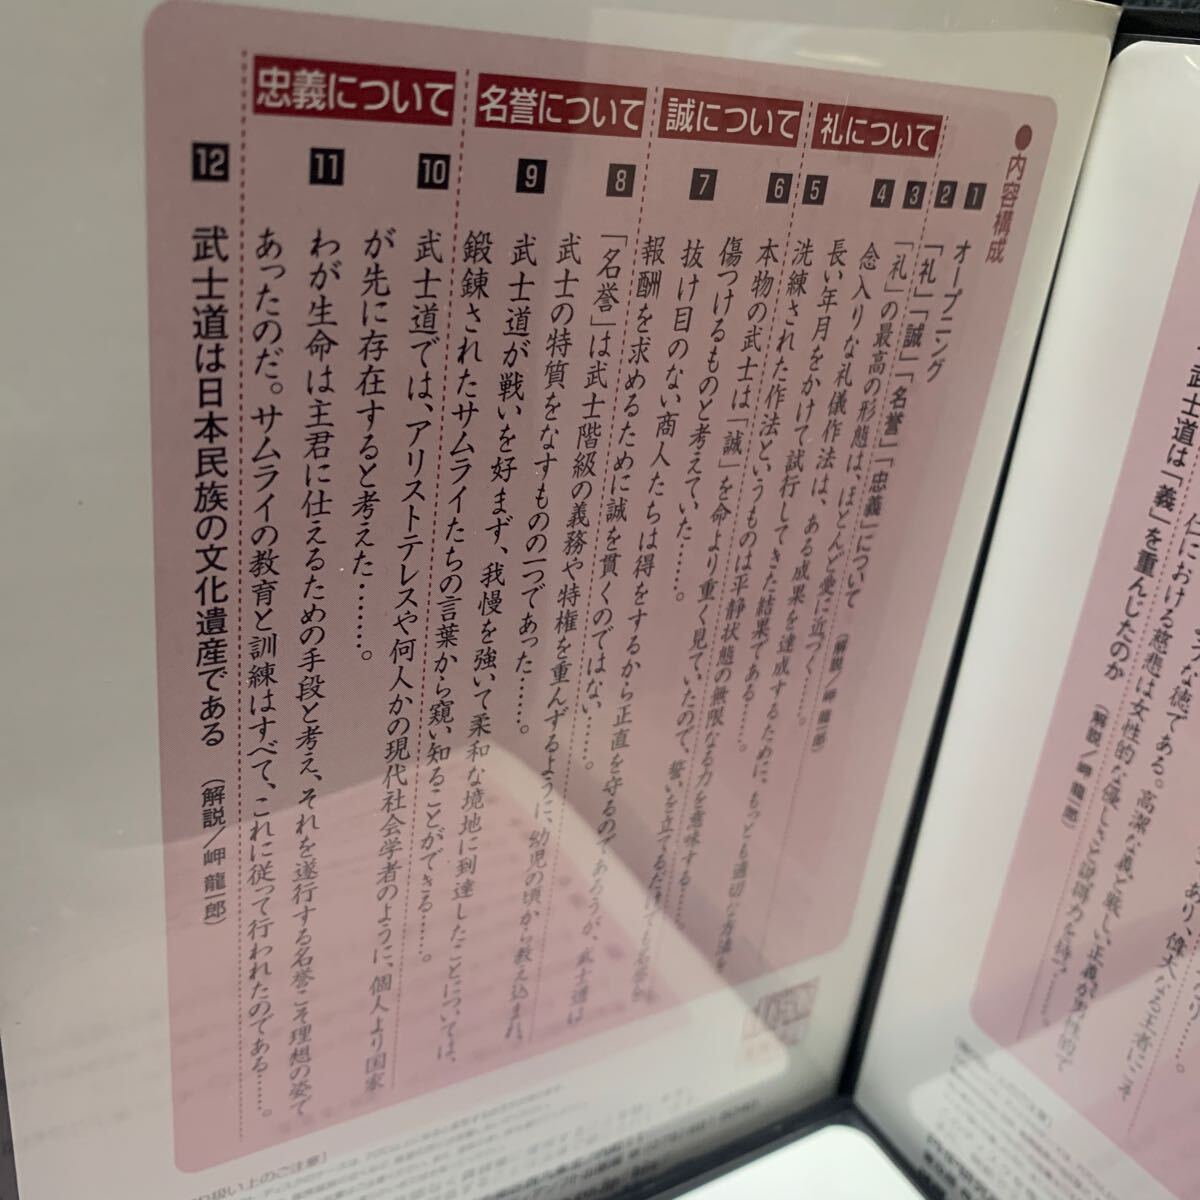 ●内容構成
1 オープニング
2 「礼」「誠」「名誉」「忠義」について (解説/岬 龍一郎)
礼について
3 「礼」の最高の形態は、ほとんど愛に近づく……。
4 念入りな礼儀作法は、ある成果を達成するために、もっとも適切な方法を
長い年月をかけて試行してきた結果である……。
5 洗練された作法というものは平静状態の無限なる力を意味する……
誠について
6 本物の武士は「誠」を命より重く見ていたので、誓いを立てるだけでも名誉を
傷つけるものと考えていた……。
7 抜け目のない商人たちは得をするから正直を守るのであろうが、武士道は
報酬を求めるために誠を貫くのではない……。
名誉について
8 「名誉」は武士階級の義務や特権を重んずるように、幼児の頃から教え込まれ、
武士の特質をなすものの一つであった……。
9 武士道が戦いを好まず、我慢を強いて柔和な境地に到達したことについては、
鍛錬されたサムライたちの言葉から窺い知ることができる……。
忠義について
10 武士道では、アリストテレスや何人かの現代社会学者のように、個人より国家
が先に存在すると考えた………。
11 わが生命は主君に仕えるための手段と考え、それを遂行する名誉こそ理想の姿で
あったのだ。サムライの教育と訓練はすべて、これに従って行われたのである……。
12 武士道は日本民族の文化遺産である (解説/岬 龍一郎)
な徳である。高潔な義と厳しい正義が男性的で
における慈悲は女性的な優しさと説得力を持つ
武士道は「義」を重んじたのか (解説/岬 龍一郎)
あり、偉大なる王者にこそ
扱い上のご注意]